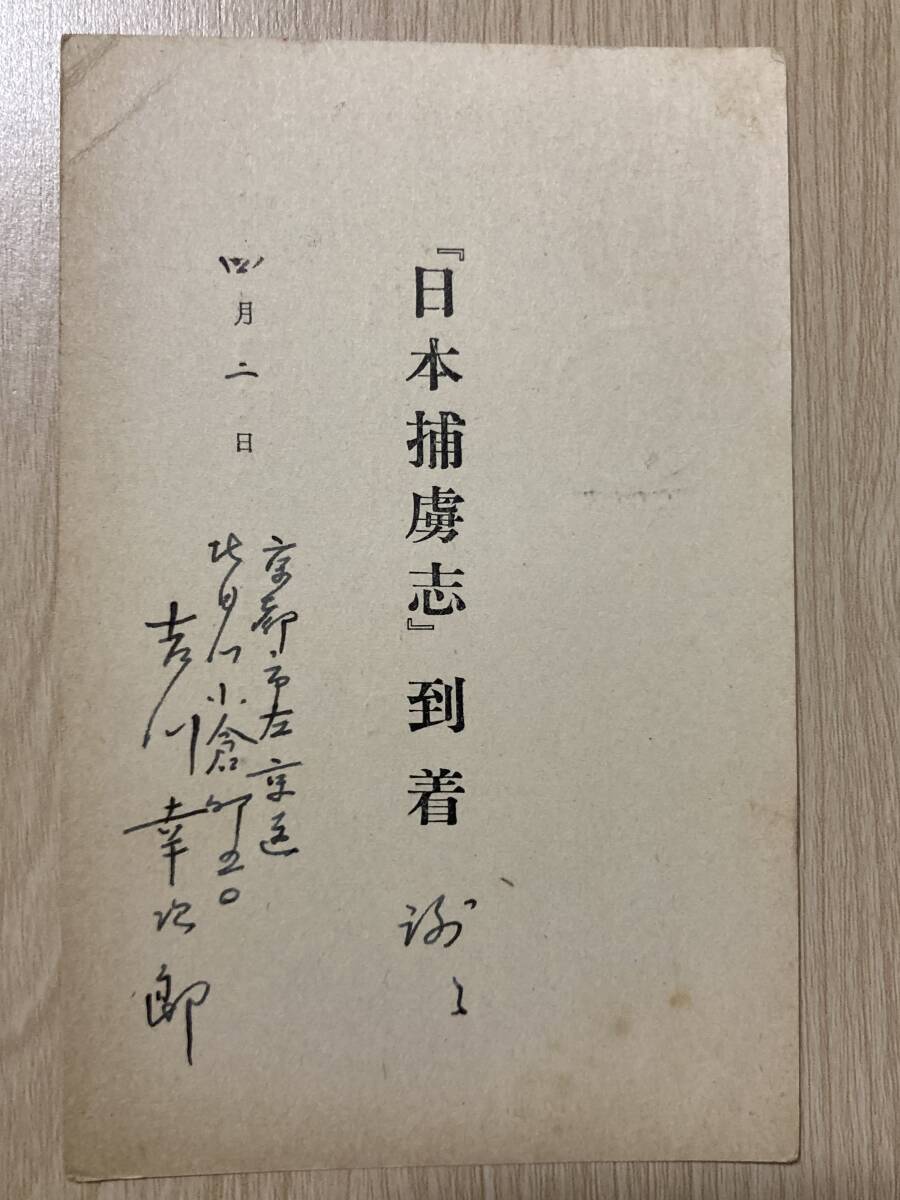 『日本捕虜志』到着 謝々
四月二日
京都市左京区
北白川小倉町五〇
吉川幸次郎